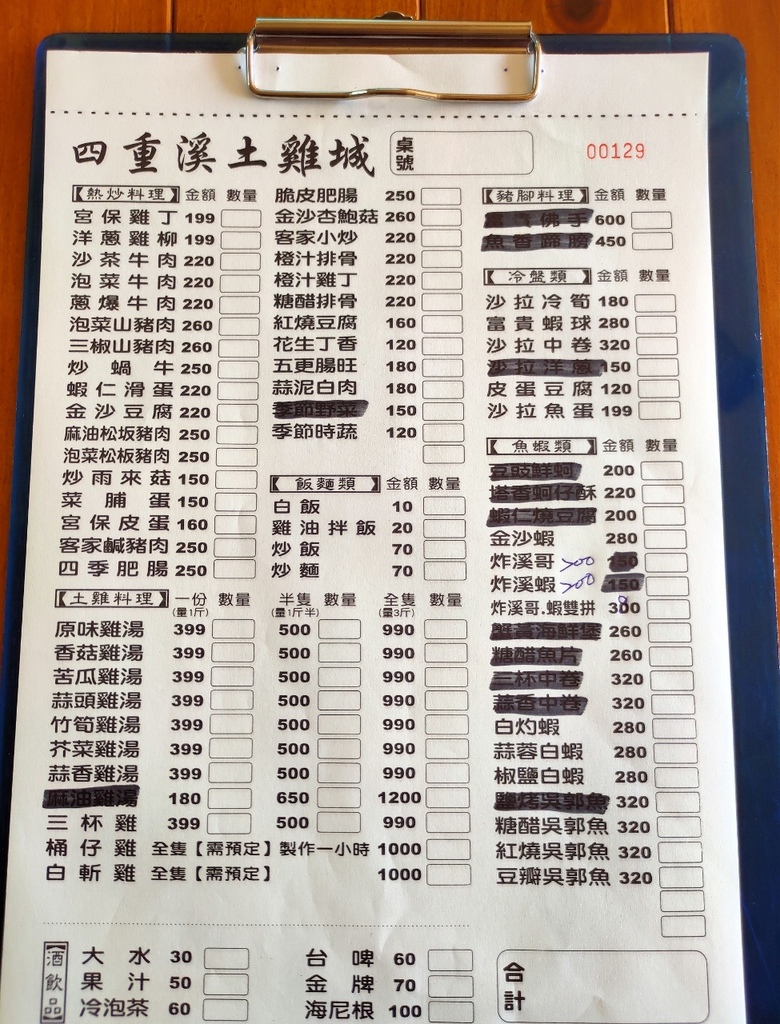 四重溪土雞城
桌號
00129
【熱炒料理】 金額 數量
宮保雞丁 199
洋蔥雞柳 199
沙茶牛肉 220
泡菜牛肉 220
蔥爆牛肉 220
泡菜山豬肉 260
三椒山豬肉 260
炒蝸牛 250
蝦仁滑蛋 220
金沙豆腐 220
麻油松坂豬肉 250
泡菜松板豬肉 250
炒雨來菇 150
菜脯蛋 150
宮保皮蛋 160
客家鹹豬肉 250
四季肥腸 250
脆皮肥腸 250
金沙杏鮑菇 260
客家小炒 220
橙汁排骨 220
橙汁雞丁 220
糖醋排骨 220
紅燒豆腐 160
花生丁香 120
五更腸旺 180
蒜泥白肉 180
季節野菜 150
季節時蔬 120
【飯麵類】 金額 數量
白飯 10
雞油拌飯 20
炒飯 70
炒麵 70
【豬腳料理】 金額 數量
佛手 600
魚香蹄膀 450
【冷盤類】 金額 數量
沙拉冷筍 180
富貴蝦球 280
沙拉中卷 320
沙拉洋蔥 150
皮蛋豆腐 120
沙拉魚蛋 199
【魚蝦類】 金額 數量
豆豉鮮蚵 200
塔香蚵仔酥 220
蝦仁燒豆腐 200
金沙蝦 280
炸溪哥 200 50
炸溪蝦 200 150
炸溪哥.蝦雙拼 300
蟹黃海鮮煲 260
糖醋魚片 260
三杯中卷 320
蒜香中卷 320
白灼蝦 280
蒜蓉白蝦 280
椒鹽白蝦 280
鹽烤吳郭魚 320
糖醋吳郭魚 320
紅燒吳郭魚 320
豆瓣吳郭魚 320
【土雞料理】 一份(量1斤) 數量 半隻(量1斤半) 數量 全隻(量3斤) 數量
原味雞湯 399 500 990
香菇雞湯 399 500 990
苦瓜雞湯 399 500 990
蒜頭雞湯 399 500 990
竹筍雞湯 399 500 990
芥菜雞湯 399 500 990
蒜香雞湯 399 500 990
麻油雞湯 180 650 1200
三杯雞 399 500 990
桶仔雞 全隻【需預定】製作一小時 1000
白斬雞 全隻【需預定】 1000
【酒飲品】
大水 30 台啤 60
果汁 50 金牌 70
冷泡茶 60 海尼根 100
合計